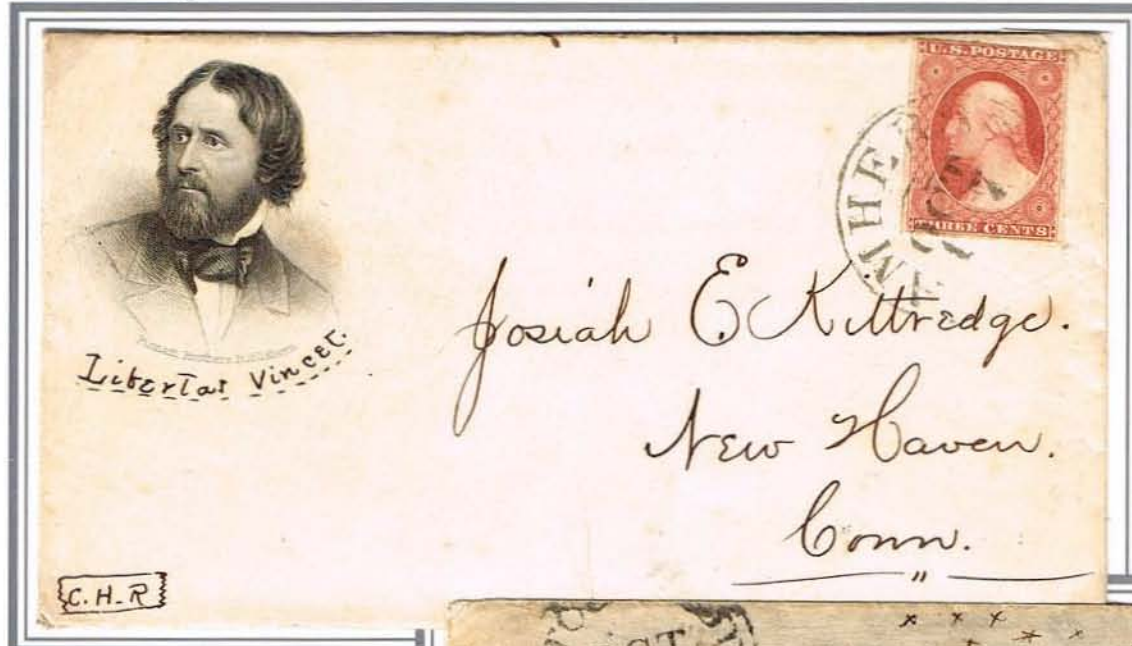 U.S. POSTAGE
THREE CENTS
Libertas Vincet.
Josiah E Kittredge.
New Haven.
Conn.
"
C.H.R